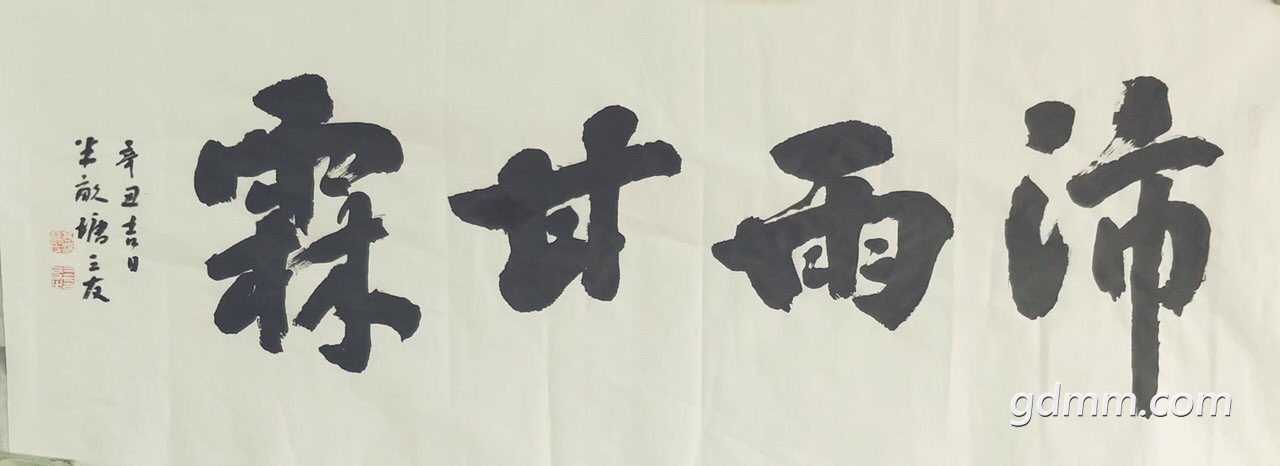 沛雨甘霖
辛丑吉日
半亩塘三友
gdmm.com